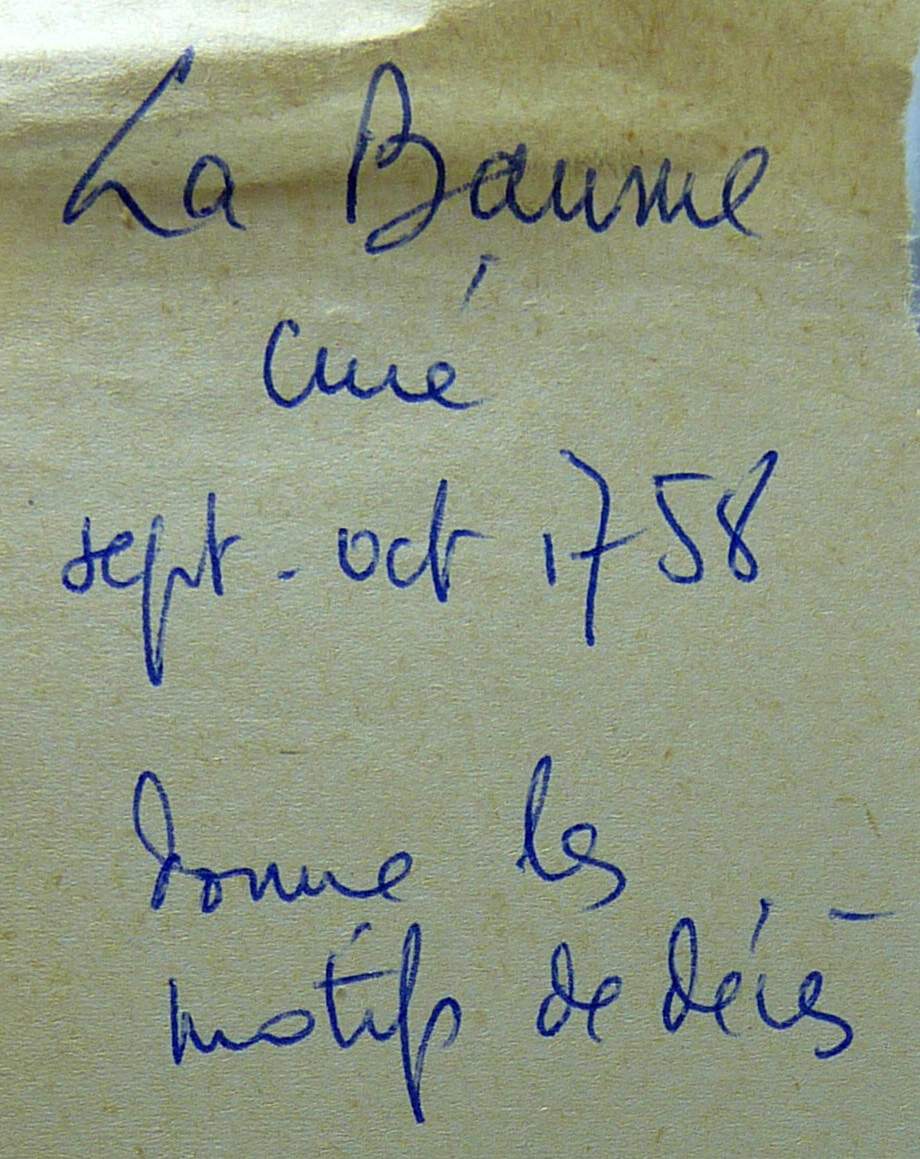 La Baume
curé
sept - oct 1758
donne les
motifs de décès